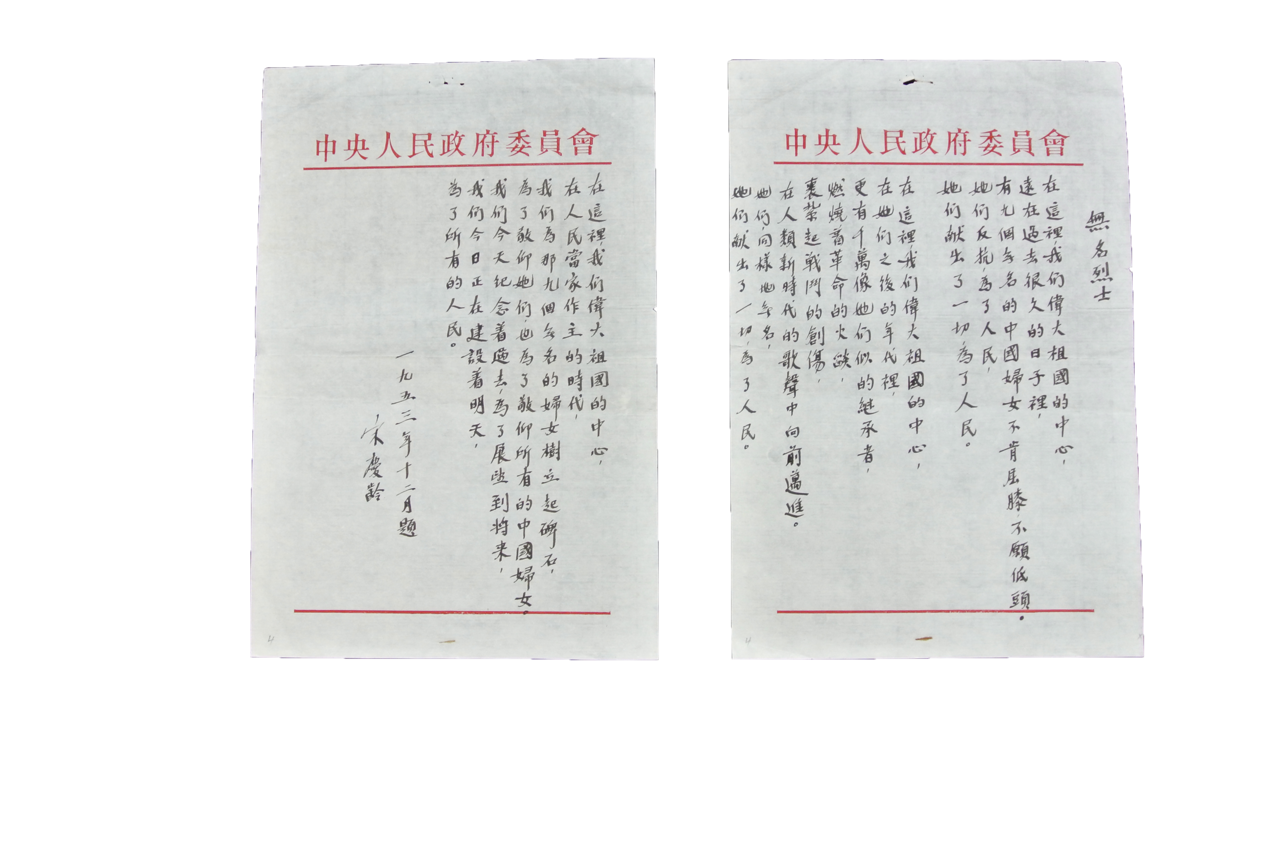 中央人民政府委員會
無名烈士
在這裡,我们偉大祖國的中心,
遠在過去很久的日子裡,
有九個無名的中國婦女不肯屈膝,不願低頭。
她们反抗,為了人民,
她们献出了一切,為了人民。
在這裡,我们偉大祖國的中心,
在她们之後的年代裡,
更有千萬像她们似的継承者,
燃燒着革命的火燄,
裹紮起戰鬥的創傷,
在人類新時代的歌聲中向前邁進。
她们同樣地無名,
她们献出了一切,為了人民。
中央人民政府委員會
在這裡,我们偉大祖國的中心,
在人民當家作主的時代,
我们為那九個無名的婦女樹立起碑石,
為了敬仰她们,也為了敬仰所有的中國婦女。
我们今天纪念着過去,為了展望到将来,
我们今日正在建設着明天,
為了所有的人民。
一九五三年十二月題
宋慶齡